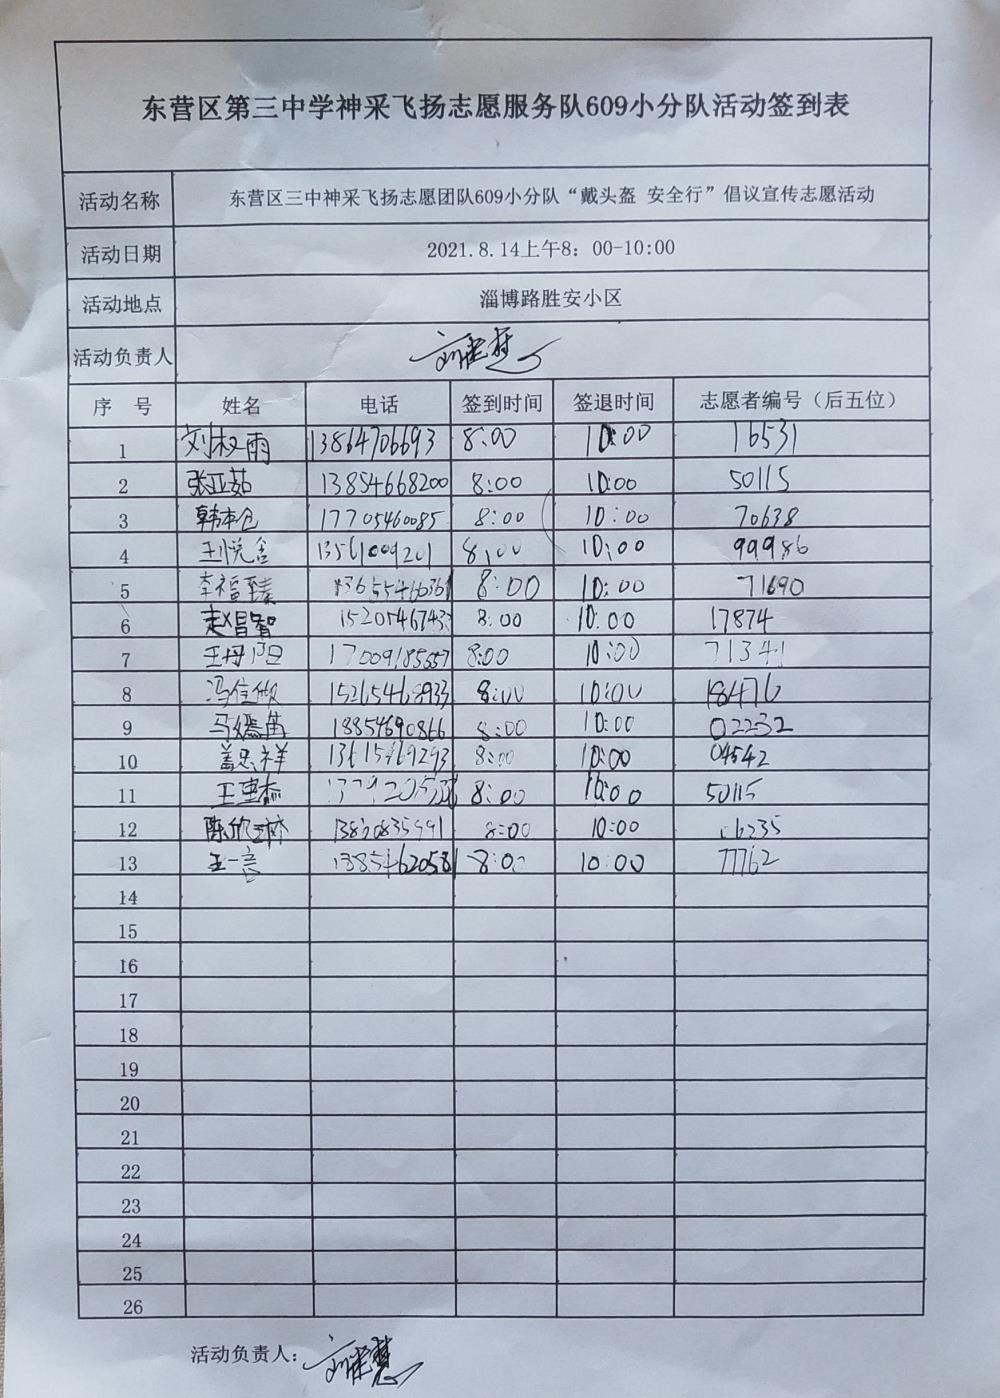 东营区第三中学神采飞扬志愿服务队609小分队活动签到表
活动名称 东营区三中神采飞扬志愿团队609小分队“戴头盔 安全行”倡议宣传志愿活动
活动日期 2021.8.14上午8：00-10:00
活动地点 淄博路胜安小区
活动负责人
序 号 姓名 电话 签到时间 签退时间 志愿者编号（后五位）
1 刘权雨 13864706693 8:00 10:00 16531
2 张亚茹 13854668200 8:00 10:00 50115
3 韩本仓 17705460085 8:00 10:00 70638
4 王悦含 13561009201 8:00 10:00 99986
5 李福臻 8:00 10:00 71690
6 赵昌智 15205467433 8:00 10:00 17874
7 17009185557 8:00 10:00 71341
8 15265468933 8:00 10:00 18476
9 马嫣笛 18854690866 8:00 10:00 02232
10 盖忠祥 13615469293 8:00 10:00 04542
11 8:00 10:00 50115
12 8:00 10:00
13 王一言 13854620581 8:00 10:00 77762
14
15
16
17
18
19
20
21
22
23
24
25
26
活动负责人：